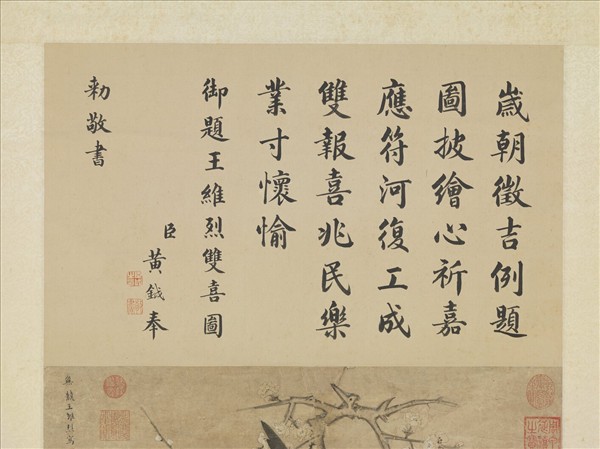 嵗朝徵吉例題
圖披繪心祈嘉
應符河復工成
雙報喜兆民樂
業寸懷愉
御題王維烈雙喜圖
臣黃鉞奉
勅敬書
無競王維烈寫